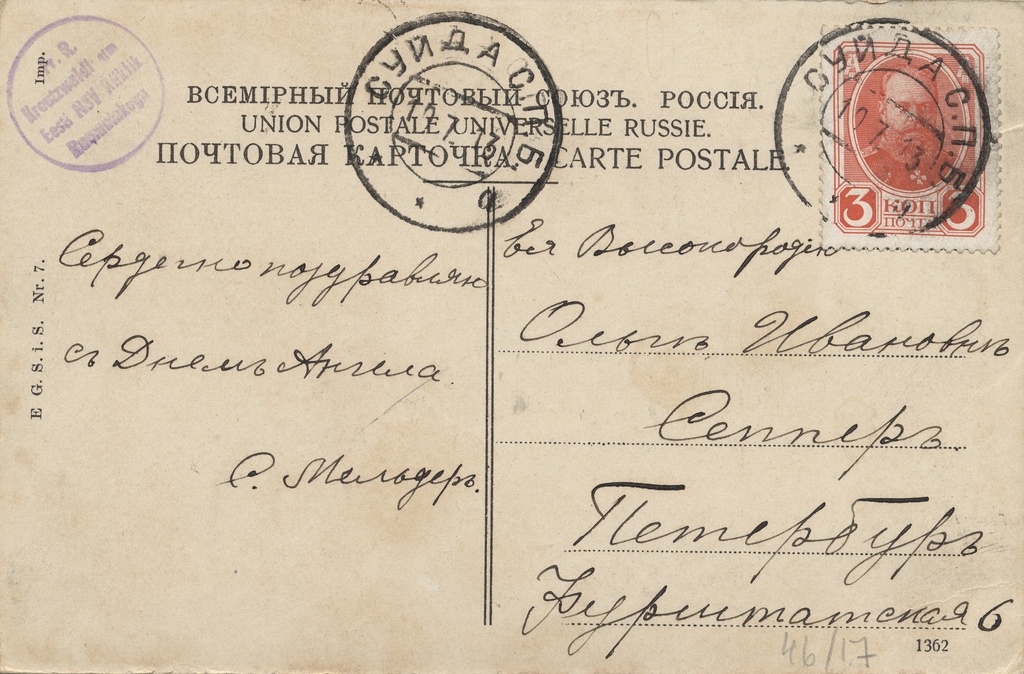 Fr. R.
Kreutzwaldi nim.
Eesti NSV Riiklik
Raamatukogu
Imp.
E G. S. i. S. Nr. 7.
СУЙДА С.П.Б.
7 13
СУЙДА С.П.Б.
10 7 13
3 КОП 3
ПОЧТ
ВСЕМІРНЫЙ ПОЧТОВЫЙ СОЮЗЪ. РОССІЯ.
UNION POSTALE UNIVERSELLE RUSSIE.
ПОЧТОВАЯ КАРТОЧКА. CARTE POSTALE
Сердечно поздравляю
съ Днемъ Ангела.
С. Мельдеръ.
Ея Высокородію
Ольгѣ Ивановнѣ
Сепперъ.
Петербургъ
Курляндская 6
46/17
1362